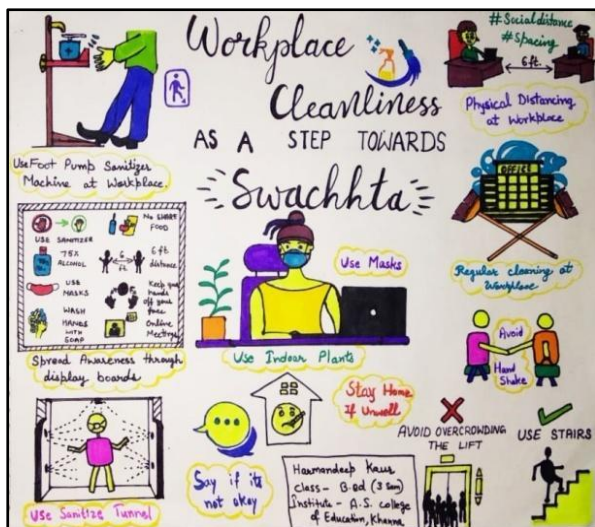 Workplace
Cleanliness
AS A STEP TOWARDS
Swachhta
#Socialdistance
#Spacing
6ft.
Physical Distancing
at Workplace
Use Foot Pump Sanitizer
Machine at Workplace.
OFFICE
Regular cleaning at
Workplace
USE SANITIZER
75%
ALCOHOL
USE
MASKS
WASH
HANDS
WITH
SOAP
No SHARE
FOOD
6
Ft
6ft
distance
Keep your
hands
off your
face
Online
Meetings
Spread Awareness through
display boards
Use Masks
Use Indoor Plants
Avoid
Hand
Shake
Stay Home
If Unwell
Say if its
not okay
AVOID OVERCROWDING
THE LIFT
USE STAIRS
Use Sanitize Tunnel
Harmandeep Kaur
Class- B.ed (3 sem)
Institute - A.S. college
of Education, Khanna